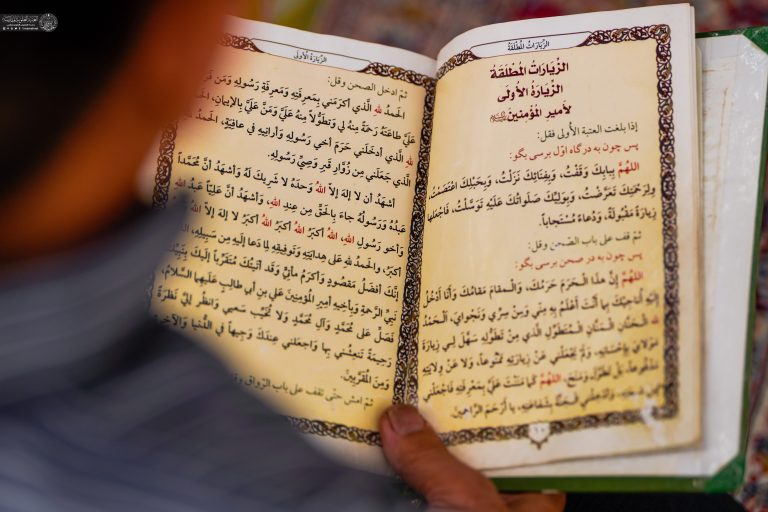 الزِّيَارَاتُ المُطْلَقَةُ
الزِّيَارَاتُ المُطْلَقَةُ
الزِّيَارَةُ الأُولَى
لأَمِيرِ المُؤْمِنِينَ
إذا بلغت العتبة الأُولى فقل:
پس چون به درگاه اوّل برسی بگو:
اللهُمَّ بِبابِكَ وَقَفْتُ، وَبِفِنائِكَ نَزَلْتُ، وَبِحَبْلِكَ اعْتَصَمْتُ
وَلِرَحْمَتِكَ تَعَرَّضْتُ، وَبِوَلِيِّكَ صَلَواتُكَ عَلَيْهِ تَوَسَّلْتُ، فَاجْعَلْها
زِيارَةً مَقْبُولَةً، وَدُعاءً مُسْتَجاباً.
ثمّ قف على باب الصّحن وقل:
پس چون به در صحن برسی بگو:
اللهُمَّ إِنَّ هذَا الْحَرَمَ حَرَمُكَ، وَالْمَقامَ مَقامُكَ وَأَنَا أَدْخُلُ
إِلَيْهِ أُناجِيكَ بِما أَنْتَ أَعْلَمُ بِهِ مِنِّي وَمِنْ سِرِّي وَنَجْوايَ، اَلْحَمْدُ
للهِ الْحَنّانِ الْمَنّانِ الْمُتَطَوِّلِ الَّذِي مِنْ تَطَوُّلِهِ سَهَّلَ لِي زِيارَةَ
مَوْلايَ بِإِحْسانِهِ، وَلَمْ يَجْعَلْنِي عَنْ زِيارَتِهِ مَمْنُوعاً، وَلا عَنْ وِلايَتِهِ
مَدْفُوعاً، بَلْ تَطَوَّلَ وَمَنَحَ، اللهُمَّ كَما مَنَنْتَ عَلَيَّ بِمَعْرِفَتِهِ فَاجْعَلْنِي
مِنْ شِيعَتِهِ، وَأَدْخِلْنِي الْجَنَّةَ بِشَفاعَتِهِ، يا أَرْحَمَ الرّاحِمِينَ.
الزِّيَارَةُ الأُولَى
ثمّ ادخل الصحن وقل:
الحَمْدُ للهِ الَّذِي أَكْرَمَنِي بِمَعْرِفَتِهِ وَمَعْرِفَةِ رَسُولِهِ وَمَنْ فَرَضَ
عَلَيَّ طاعَتَهُ رَحْمَةً مِنْهُ لِي وَتَطَوُّلاً مِنْهُ عَلَيَّ وَمَنَّ عَلَيَّ بِالإِيمانِ، الحَمْدُ
للهِ الَّذِي أَدْخَلَنِي حَرَمَ أَخِي رَسُولِهِ وَأَرانِيهِ فِي عافِيَةٍ، الحَمْدُ
الَّذِي جَعَلَنِي مِنْ زُوّارِ قَبْرِ وَصِيِّ رَسُولِهِ.
أَشْهَدُ أَنْ لا إِلهَ إِلاَّ اللهُ وَحْدَهُ لا شَرِيكَ لَهُ وَأَشْهَدُ أَنَّ مُحَمَّداً
عَبْدُهُ وَرَسُولُهُ جاءَ بِالحَقِّ مِنْ عِنْدِ اللهِ، وَأَشْهَدُ أَنَّ عَلِيّاً عَبْدُ
وَأَخُو رَسُولِ اللهِ، اللهُ أَكْبَرُ اللهُ أَكْبَرُ اللهُ أَكْبَرُ لا إِلهَ إِلاَّ
أَكْبَرُ، وَالحَمْدُ للهِ عَلى هِدايَتِهِ وَتَوْفِيقِهِ لِما دَعا إِلَيْهِ مِنْ سَبِيلِهِ،
إِنَّكَ أَفْضَلُ مَقْصُودٍ وَأَكْرَمُ مَأْتِيٍّ وَقَدْ أَتَيْتُكَ مُتَقَرِّباً إِلَيْكَ
نَبِيِّ الرَّحْمَةِ وَبِأَخِيهِ أَمِيرِ المُؤْمِنِينَ عَلِيِّ بنِ أَبِي طالِبٍ عَلَيْهِما السَّلامُ،
فَصَلِّ عَلى مُحَمَّدٍ وَآلِ مُحَمَّدٍ وَلا تُخَيِّبْ سَعْيِي وَانْظُرْ إِلَيَّ نَظْرَةً
رَحِيمَةً تَنْعَشُنِي بِها وَاجْعَلْنِي عِنْدَكَ وَجِيهاً فِي الدُّنْيا وَالآخِرَةِ
وَمِنَ المُقَرَّبِينَ.
ثمّ امش حتى تقف على باب الرّواق